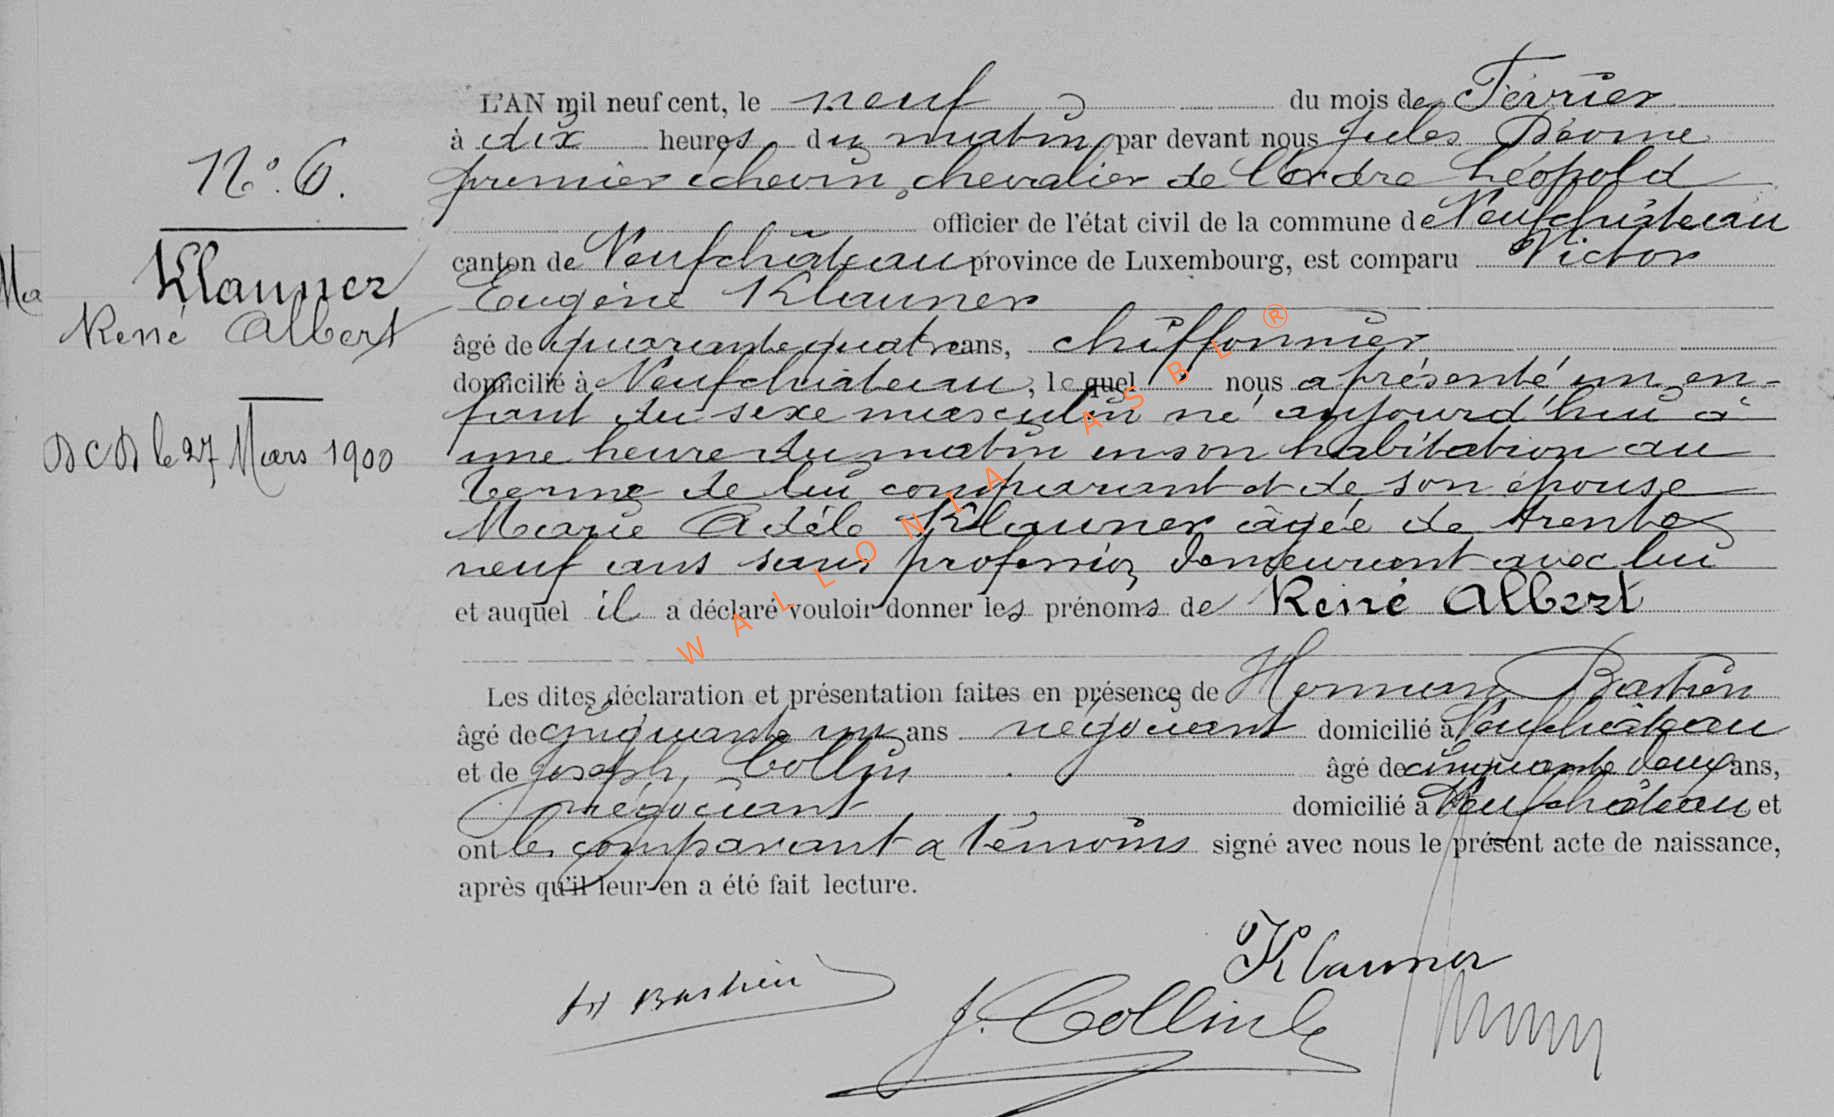 N° 6.
Klauner
René Albert
DCD le 27 Mars 1900
Ma
L'AN mil neuf cent, le neuf du mois de Février
à dix heures du matin par devant nous Jules
premier échevin, chevalier de l'ordre Léopold
officier de l'état civil de la commune de Neufchâteau
canton de Neufchâteau province de Luxembourg, est comparu Victor
Eugène Klauner
âgé de quarante quatre ans, chiffonnier
domicilié à Neufchâteau, lequel nous a présenté un en-
fant du sexe masculin né aujourd'hui à
une heure du matin en son habitation au
de lui comparant et de son épouse
Marie Adèle Klauner âgée de trente
neuf ans sans profession demeurant avec lui
et auquel il a déclaré vouloir donner les prénoms de René Albert
Les dites déclaration et présentation faites en présence de Hermann Bastien
âgé de cinquante un ans négociant domicilié à Neufchâteau
et de Joseph Collin âgé de cinquante deux ans,
négociant domicilié à Neufchâteau et
ont les comparant & témoins signé avec nous le présent acte de naissance,
après qu'il leur en a été fait lecture.
Klauner
H Bastien
J. Collin
WALLONIA ASBL ®